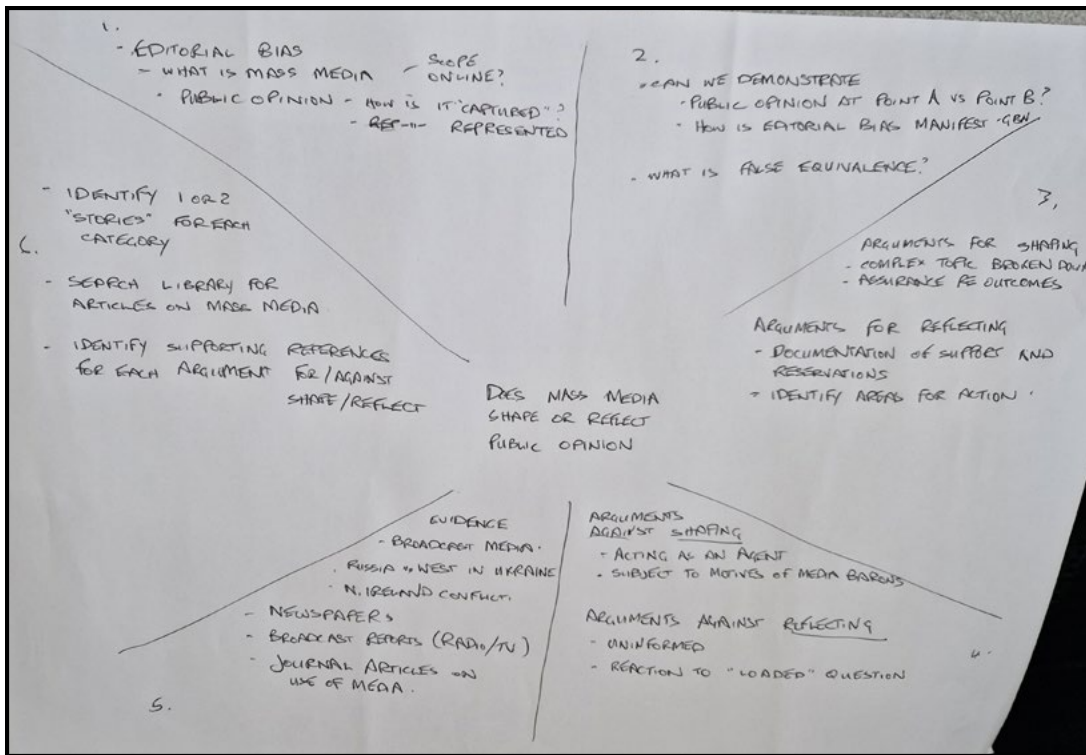 1.
- EDITORIAL BIAS
- WHAT IS MASS MEDIA - SCOPE
ONLINE?
• PUBLIC OPINION - HOW IS IT "CAPTURED"?
- REPRESENTED
2.
• CAN WE DEMONSTRATE
• PUBLIC OPINION AT POINT A VS POINT B?
• HOW IS EDITORIAL BIAS MANIFEST - GBN
- WHAT IS FALSE EQUIVALENCE?
3.
ARGUMENTS FOR SHAPING
- COMPLEX TOPIC BROKEN DOWN
- ASSURANCE RE OUTCOMES
ARGUMENTS FOR REFLECTING
- DOCUMENTATION OF SUPPORT AND
RESERVATIONS
- IDENTIFY AREAS FOR ACTION.
4.
ARGUMENTS
AGAINST SHAPING
- ACTING AS AN AGENT
• SUBJECT TO MOTIVES OF MEDIA BARONS
ARGUMENTS AGAINST REFLECTING
- UNINFORMED
- REACTION TO "LOADED" QUESTION
5.
EVIDENCE
- BROADCAST MEDIA.
• RUSSIA vs WEST IN UKRAINE
• N. IRELAND CONFLICT.
- NEWSPAPERS
- BROADCAST REPORTS (RADIO/TV)
- JOURNAL ARTICLES ON
USE OF MEDIA.
6.
- IDENTIFY 1 OR 2
"STORIES" FOR EACH
CATEGORY
- SEARCH LIBRARY FOR
ARTICLES ON MASS MEDIA
- IDENTIFY SUPPORTING REFERENCES
FOR EACH ARGUMENT FOR/AGAINST
SHAPE/REFLECT
DOES MASS MEDIA
SHAPE OR REFLECT
PUBLIC OPINION